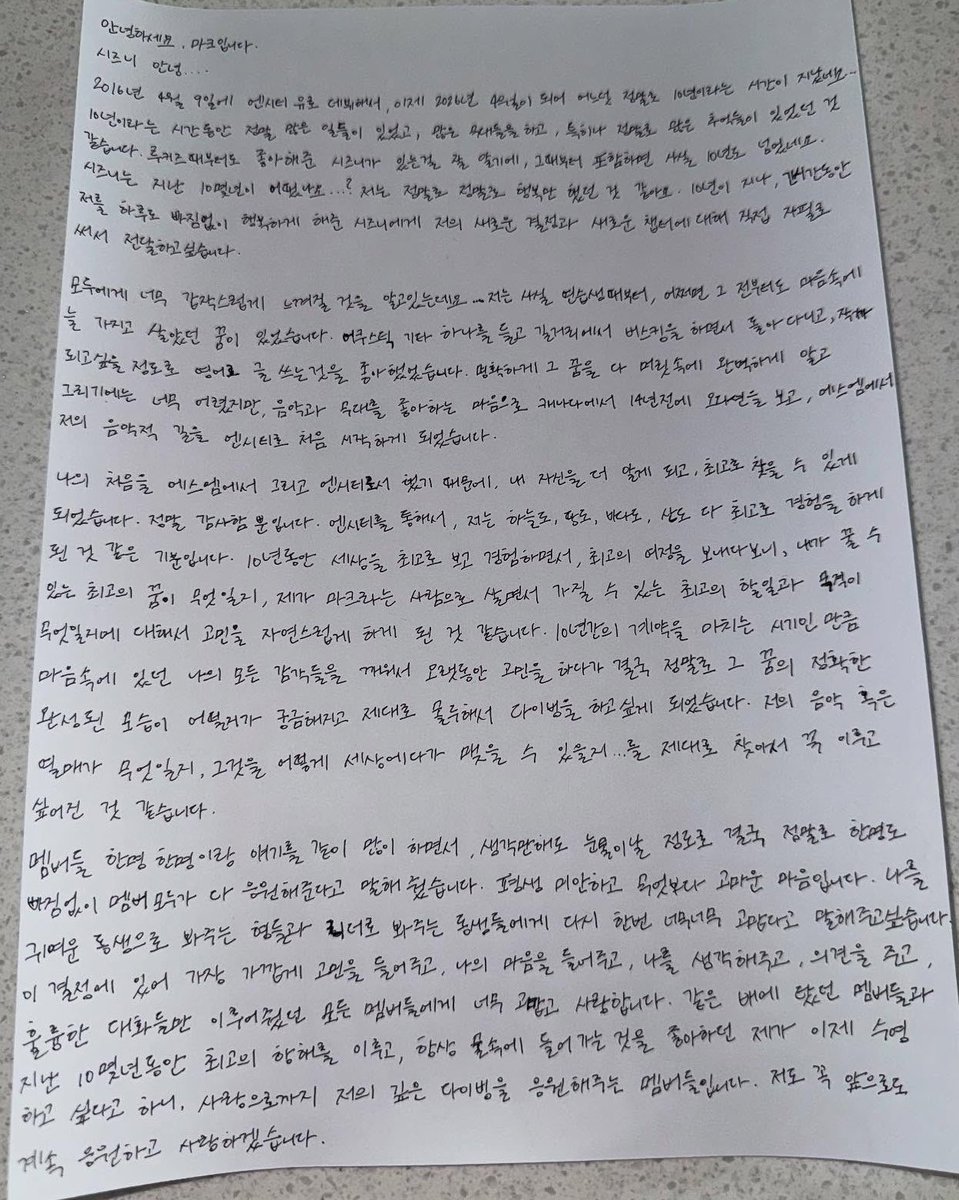 안녕하세요, 마크입니다.
시즈니 안녕....
2016년 4월 9일에 엔시티 유로 데뷔해서, 이제 2026년 4월이 되어 어느덧 정말로 10년이라는 시간이 지났네요...
10년이라는 시간동안 정말 많은 일들이 있었고, 많은 무대들을 하고, 특히나 정말로 많은 추억들이 있었던 것
같습니다. 루키즈 때부터도 좋아해준 시즈니가 있는걸 잘 알기에, 그때부터 포함하면 사실 10년도 넘었네요.
시즈니는 지난 10몇년이 어땠나요...? 저는 정말로 정말로 행복만 했던 것 같아요. 10년이 지나, 긴시간동안
저를 하루도 빠짐없이 행복하게 해준 시즈니에게 저의 새로운 결정과 새로운 챕터에 대해 직접 자필로
써서 전달하고싶습니다.
모두에게 너무 갑작스럽게 느껴질 것을 알고있는데요...저는 사실 연습생때부터, 어쩌면 그 전부터도 마음속에
늘 가지고 살았던 꿈이 있었습니다. 어쿠스틱 기타 하나를 들고 길거리에서 버스킹을 하면서 돌아다니고, 작가
되고싶을 정도로 영어로 글 쓰는것을 좋아했었습니다. 명확하게 그 꿈을 다 머릿속에 완벽하게 알고
그리기에는 너무 어렸지만, 음악과 무대를 좋아하는 마음으로 캐나다에서 14년전에 오디션을 보고, 에스엠에서
저의 음악적 길을 엔시티로 처음 시작하게 되었습니다.
나의 처음을 에스엠에서 그리고 엔시티로서 했기 때문에, 내 자신을 더 알게 되고, 최고로 찾을 수 있게
되었습니다. 정말 감사함 뿐입니다. 엔시티를 통해서, 저는 하늘도, 땅도, 바다도, 산도 다 최고로 경험을 하게
된 것 같은 기분입니다. 10년동안 세상을 최고로 보고 경험하면서, 최고의 여정을 보내다보니, 내가 꿀 수
있는 최고의 꿈이 무엇일지, 제가 마크라는 사람으로 살면서 가질 수 있는 최고의 할일과 목적이
무엇일지에 대해서 고민을 자연스럽게 하게 된 것 같습니다. 10년간의 계약을 마치는 시기인 만큼
마음속에 있던 나의 모든 감각들을 깨워서 오랫동안 고민을 하다가 결국 정말로 그 꿈의 정확한
완성된 모습이 어떨지가 궁금해지고 제대로 몰두해서 다이빙을 하고싶게 되었습니다. 저의 음악 혹은
열매가 무엇일지, 그것을 어떻게 세상에다가 맺을 수 있을지...를 제대로 찾아서 꼭 이루고
싶어진 것 같습니다.
멤버들 한명 한명이랑 얘기를 같이 많이 하면서, 생각만해도 눈물이날 정도로 결국 정말로 한명도
빠짐없이 멤버 모두가 다 응원해준다고 말해줬습니다. 평생 미안하고 무엇보다 고마운 마음입니다. 나를
귀여운 동생으로 봐주는 형들과 리더로 봐주는 동생들에게 다시 한번 너무너무 고맙다고 말해주고싶습니다.
이 결정에 있어 가장 가깝게 고민을 들어주고, 나의 마음을 들어주고, 나를 생각해주고, 의견을 주고,
훌륭한 대화들만 이루어줬던 모든 멤버들에게 너무 고맙고 사랑합니다. 같은 배에 탔던 멤버들과
지난 10몇년동안 최고의 항해를 이루고, 항상 물속에 들어가는 것을 좋아하던 제가 이제 수영
하고 싶다고 하니, 사랑으로까지 저의 깊은 다이빙을 응원해주는 멤버들입니다. 저도 꼭 앞으로도
계속 응원하고 사랑하겠습니다.